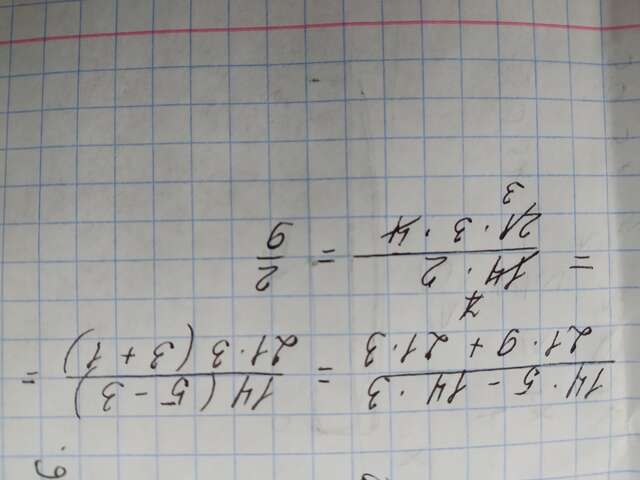 6.
14 · 5 - 14 · 3
21 · 9 + 21 · 3
=
14 (5 - 3)
21 · 3 (3 + 1)
=
=
14 · 2
21 · 3 · 4
3
=
2
9